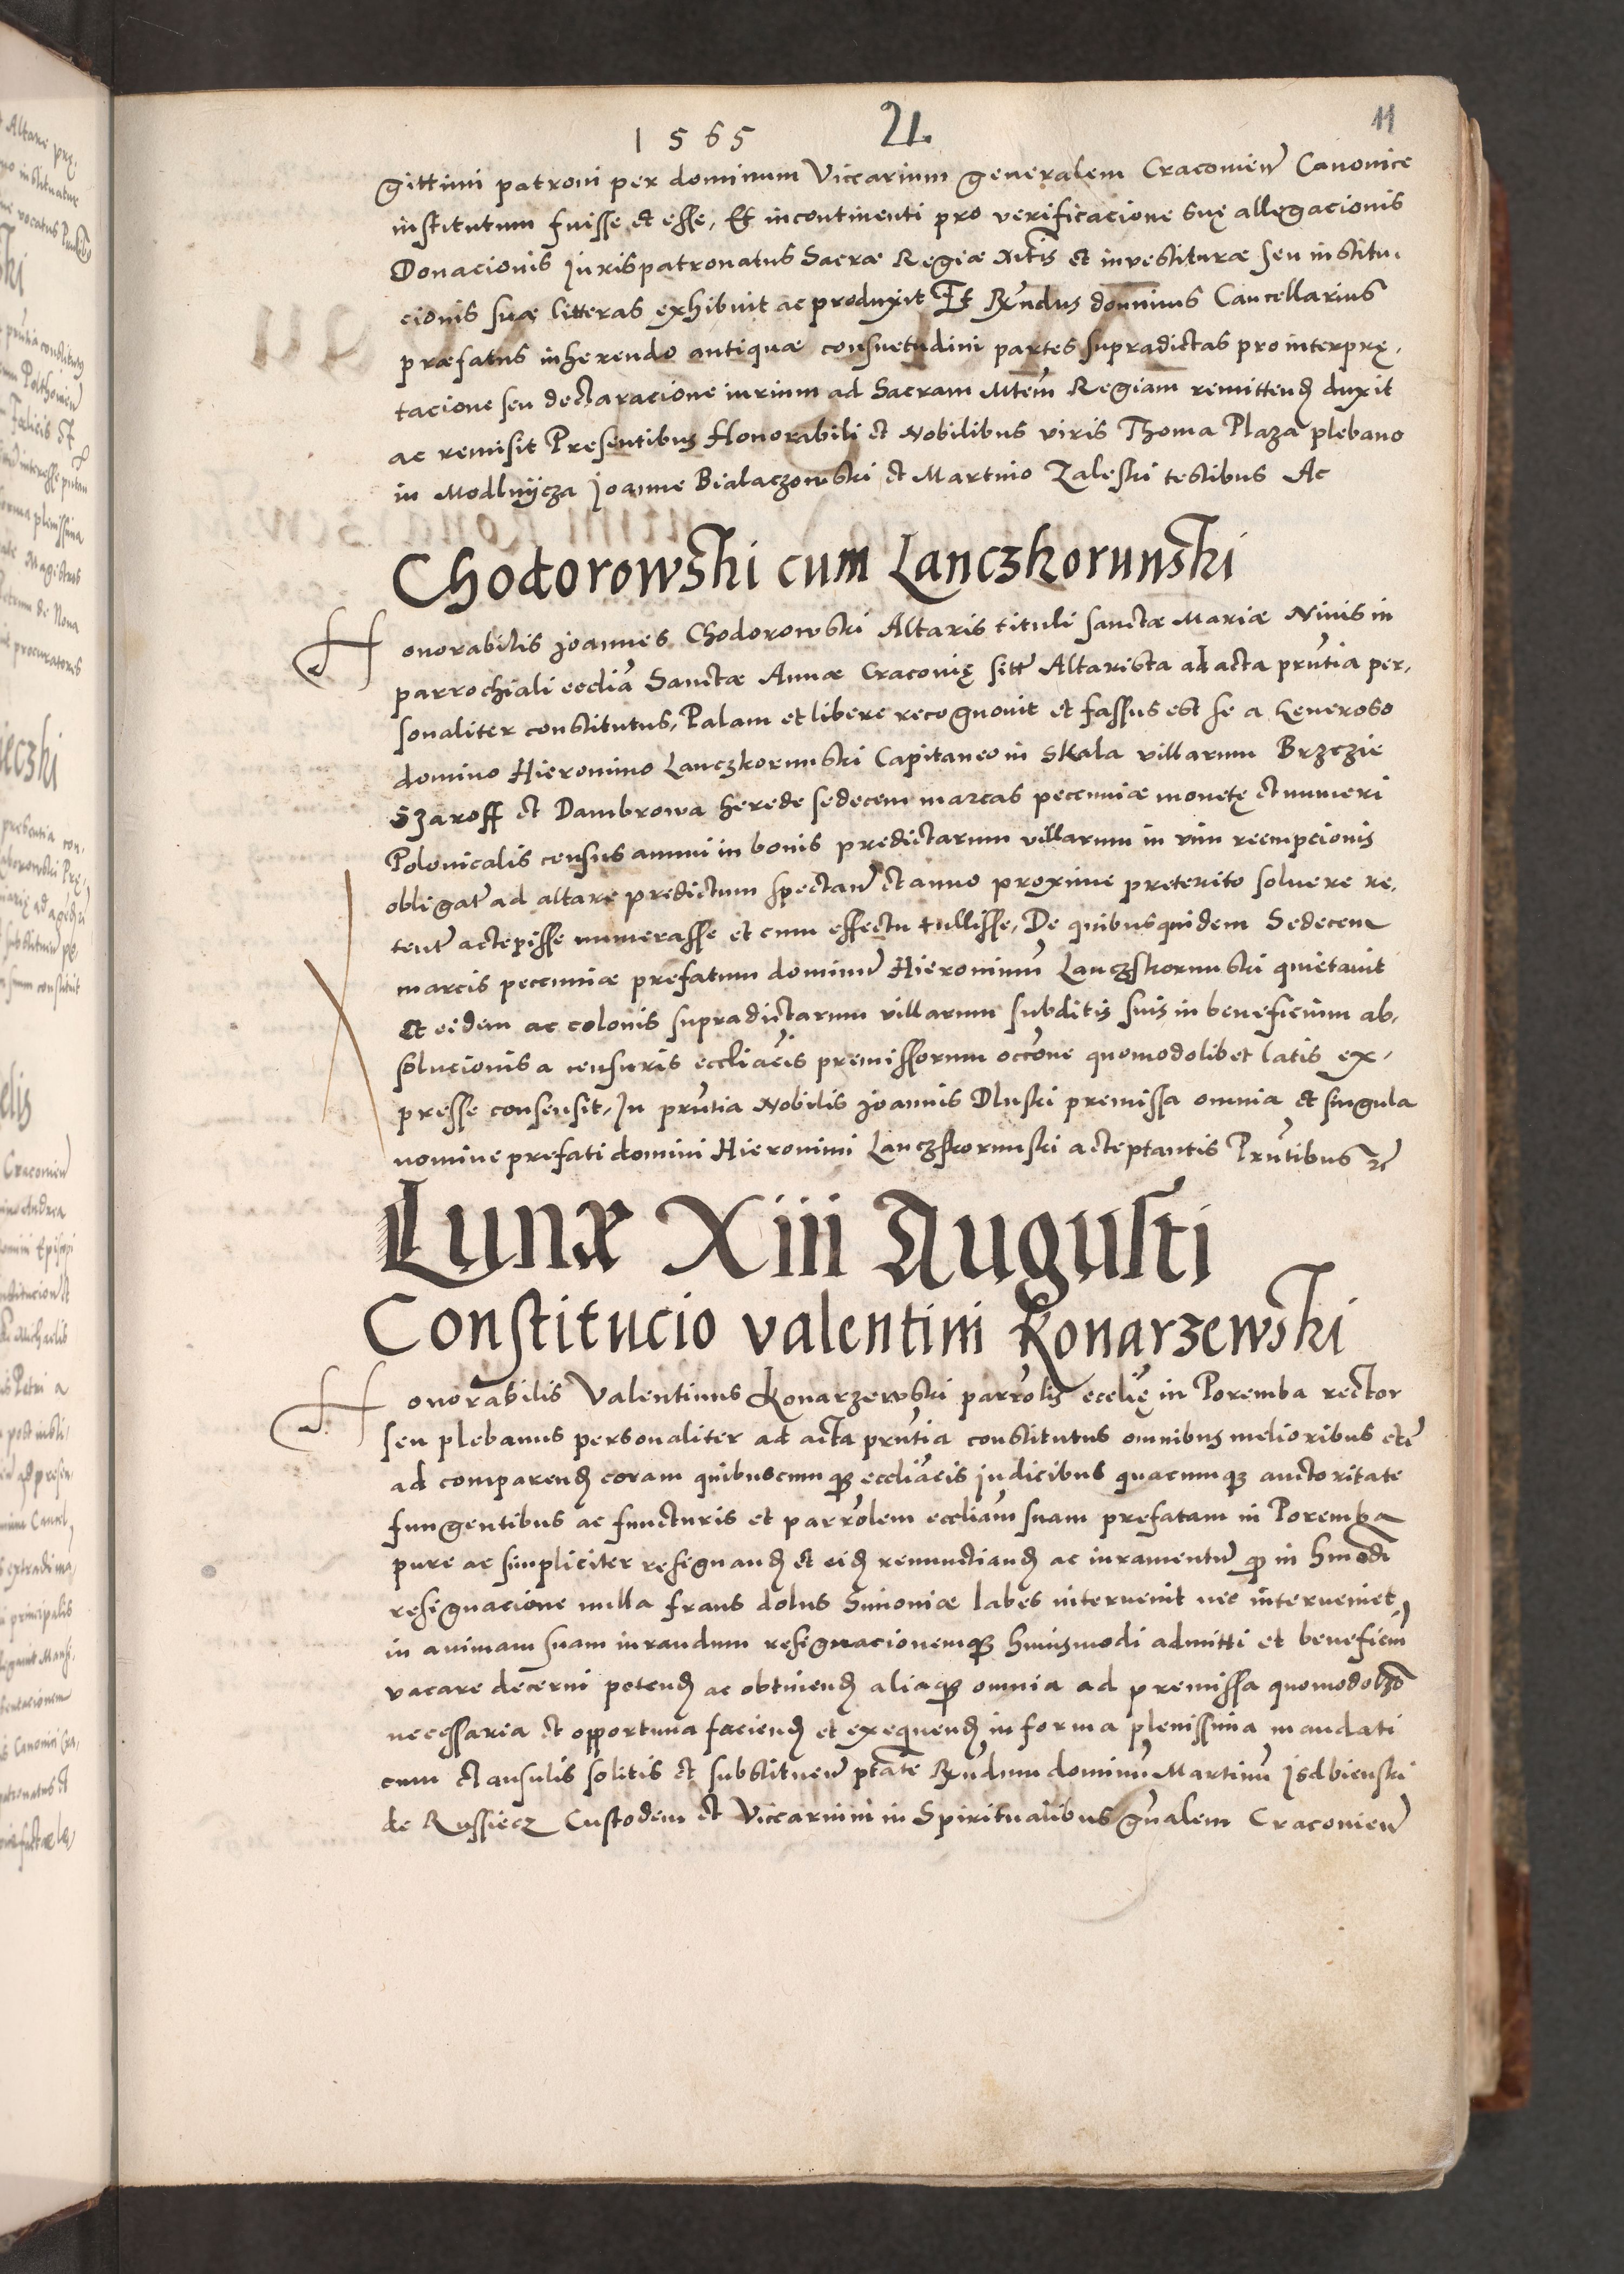 1565 21. 11
gittimi patroni per dominum Viccarium generalem Cracovien Canonice
institutum fuisse et esse, Et incontinenti pro verificacione suę allegacionis
Donacionis Jurispatronatus Sacræ Regiæ Mtis et investituræ seu institu,
cionis suæ litteras exhibuit ac produxit Et Rndus dominus Cancellarius
præfatus inherendo antiquæ consuetudini partes supradictas pro interprę,
tacione seu declaracione iurium ad Sacram Mtem Regiam remittend duxit
ac remisit Presentibus Honorabili et Nobilibus viris Thoma Plaza plebano
in Modlnÿcza Joanne Bialaczowski et Martino Zaleski testibus Ac
Chodorowski cum Lanczkorunski
Honorabilis Joannes Chodorowski Altaris tituli sanctæ Mariæ Nivis in
parrochiali ecclia Sanctæ Annæ Cracovię sitt Altarista ad acta prntia per,
sonaliter constitutus, Palam et libere recognovit et fassus est se a Generoso
domino Hieronimo Lanczkorunski Capitaneo in Skala villarum Brzezie
Szaroff et Dambrowa herede sedecem marcas pecuniæ monetę et numeri
Polonicalis census annui in bonis predictarum villarum in vim reempcionis
obligat ad altare predictum spectan et anno proxime preterito solvere re,
tent accepisse numerasse et cum effectu tullisse, De quibusquidem Sedecem
marcis pecuniæ prefatum dominum Hieronimum Lanczkorunski quietavit
et eidem ac colonis supradictarum villarum subditis suis in beneficium ab,
solucionis a censuris eccliacis premissorum occone quomodolibet latis ex,
presse consensit, In prntia Nobilis Joannis Dluski premissa omnia et singula
nomine prefati domini Hieronimi Lanczkorunski acceptantis Prntibus etc
Lunæ Xiii Augusti
Constitucio valentini Konarzewski
Honorabilis Valentinus Konarzewski parrolis ecclię in Poremba rector
seu plebanus personaliter ad acta prntia constitutus omnibus melioribus etc
ad comparend coram quibuscumq eccliacis judicibus quacumq auctoritate
fungentibus ac functuris et parrolem eccliam suam prefatam in Poremba
pure ac simpliciter resignand et eid renunctiand ac iuramentum q in hmodi
resignacione nulla fraus dolus Simoniæ labes intervenit nec interveniet
in animam suam iurandum resignacionemq huiusmodi admitti et beneficium
vacare decerni petend ac obtinend aliaq omnia ad premissa quomodolibet
necessaria et opportuna faciend et exequend in forma plenissima mandati
cum clausulis solitis et substituen ptate Rndum dominum Martinum Isdbienski
de Russiecz Custodem et Viccarium in Spiritualibus gnalem Cracovien